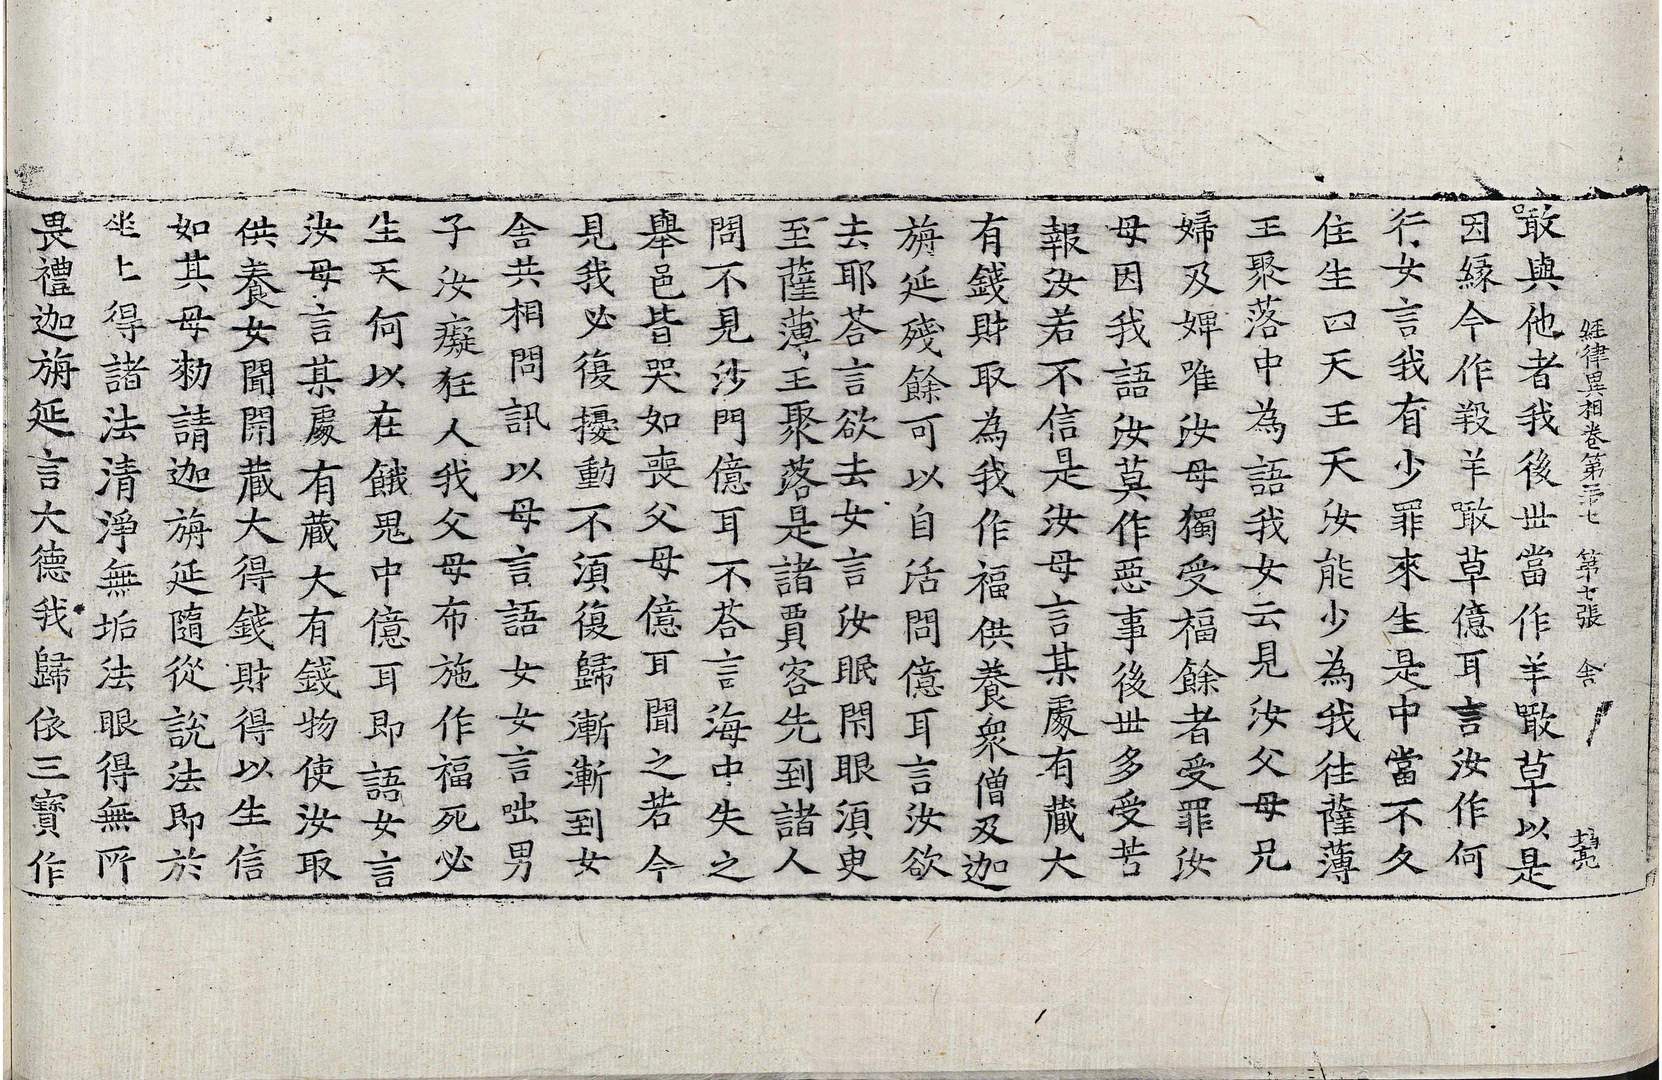 經律異相卷第三十七 第七張 舍
噉與他者我後世當作羊噉草以是
因緣今作羖羊噉草億耳言汝作何
行女言我有少罪來生是中當不久
住生四天王天汝能少為我往薩薄
王聚落中為語我女云見汝父母兄
婦及婢唯汝母獨受福餘者受罪汝
母因我語汝莫作惡事後世多受苦
報汝若不信是汝母言某處有藏大
有錢財取為我作福供養眾僧及迦
旃延殘餘可以自活問億耳言汝欲
去耶荅言欲去女言汝眠閇眼須臾
至薩薄王聚落是諸賈客先到諸人
問不見沙門億耳不荅言海中失之
舉邑皆哭如喪父母億耳聞之若今
見我必復擾動不須復歸漸漸到女
舍共相問訊以母言語女女言咄男
子汝癡狂人我父母布施作福死必
生天何以在餓鬼中億耳即語女言
汝母言某處有藏大有錢物使汝取
供養女聞開藏大得錢財得以生信
如其母勑請迦旃延隨從說法即於
坐上得諸法清淨無垢法眼得無所
畏禮迦旃延言大德我歸依三寶作